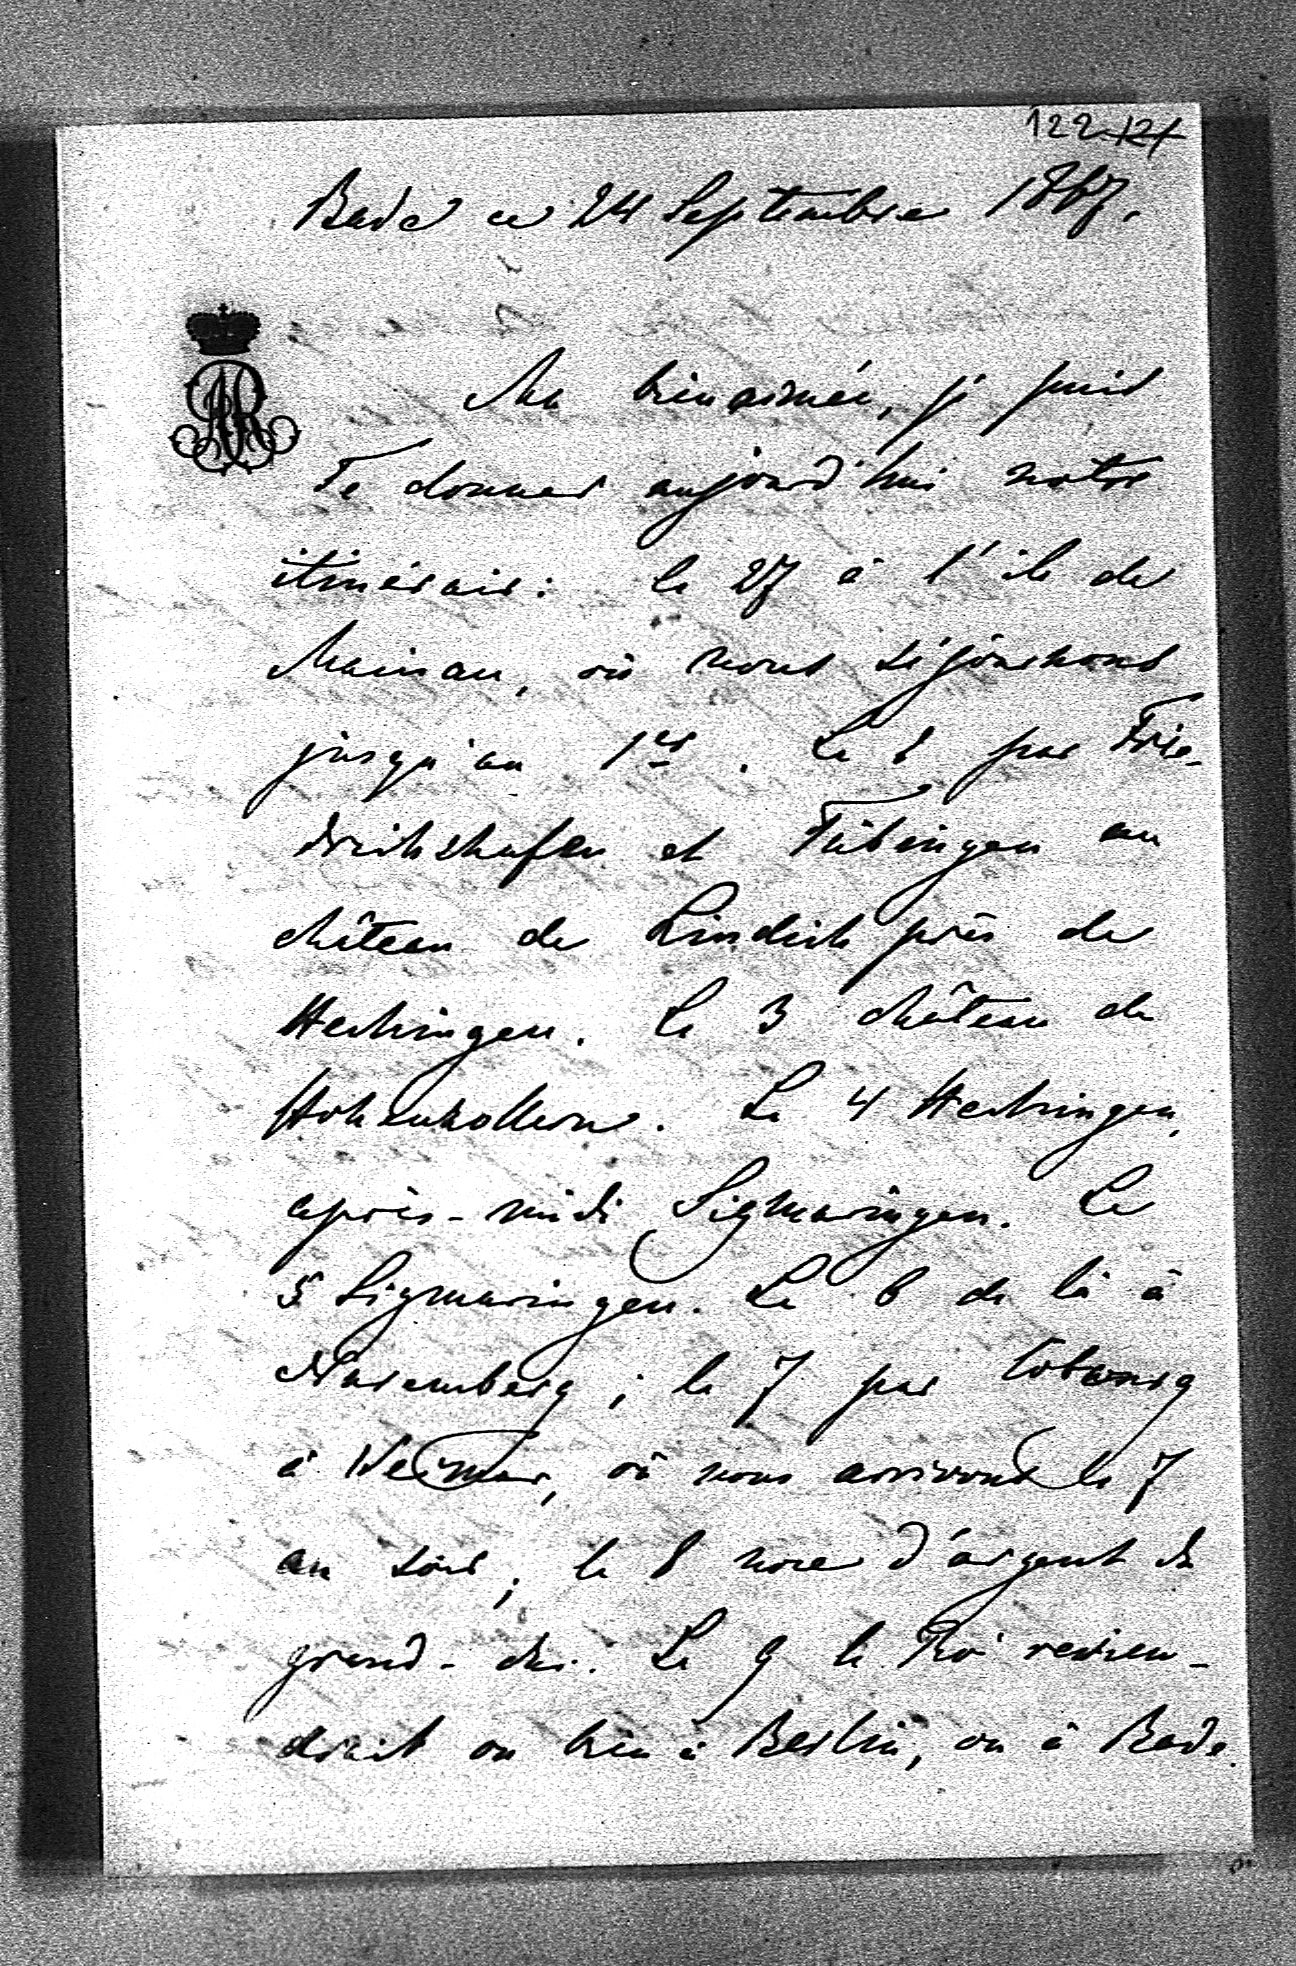 122 121
Bade ce 24 Septembre 1867.
Ma bienaimée, je puis
Te donner aujourd'hui notre
itinérair: le 27 à l'île de
Mainau, où nous séjournons
jusqu'au 1er. Le 2 par Frie-
drichshafen et Tübingen au
château de Lindich près de
Hechingen. Le 3 château de
Hohenzollern. Le 4 Hechingen,
après-midi Sigmaringen. Le
5 Sigmaringen. Le 6 de là à
Nuremberg; le 7 par Cobourg
à Weimar, où nous arrivons le 7
au soir; le 8 noce d'argent du
grand-duc. Le 9 le Roi revien-
drait ou bien à Berlin, ou à Bade.